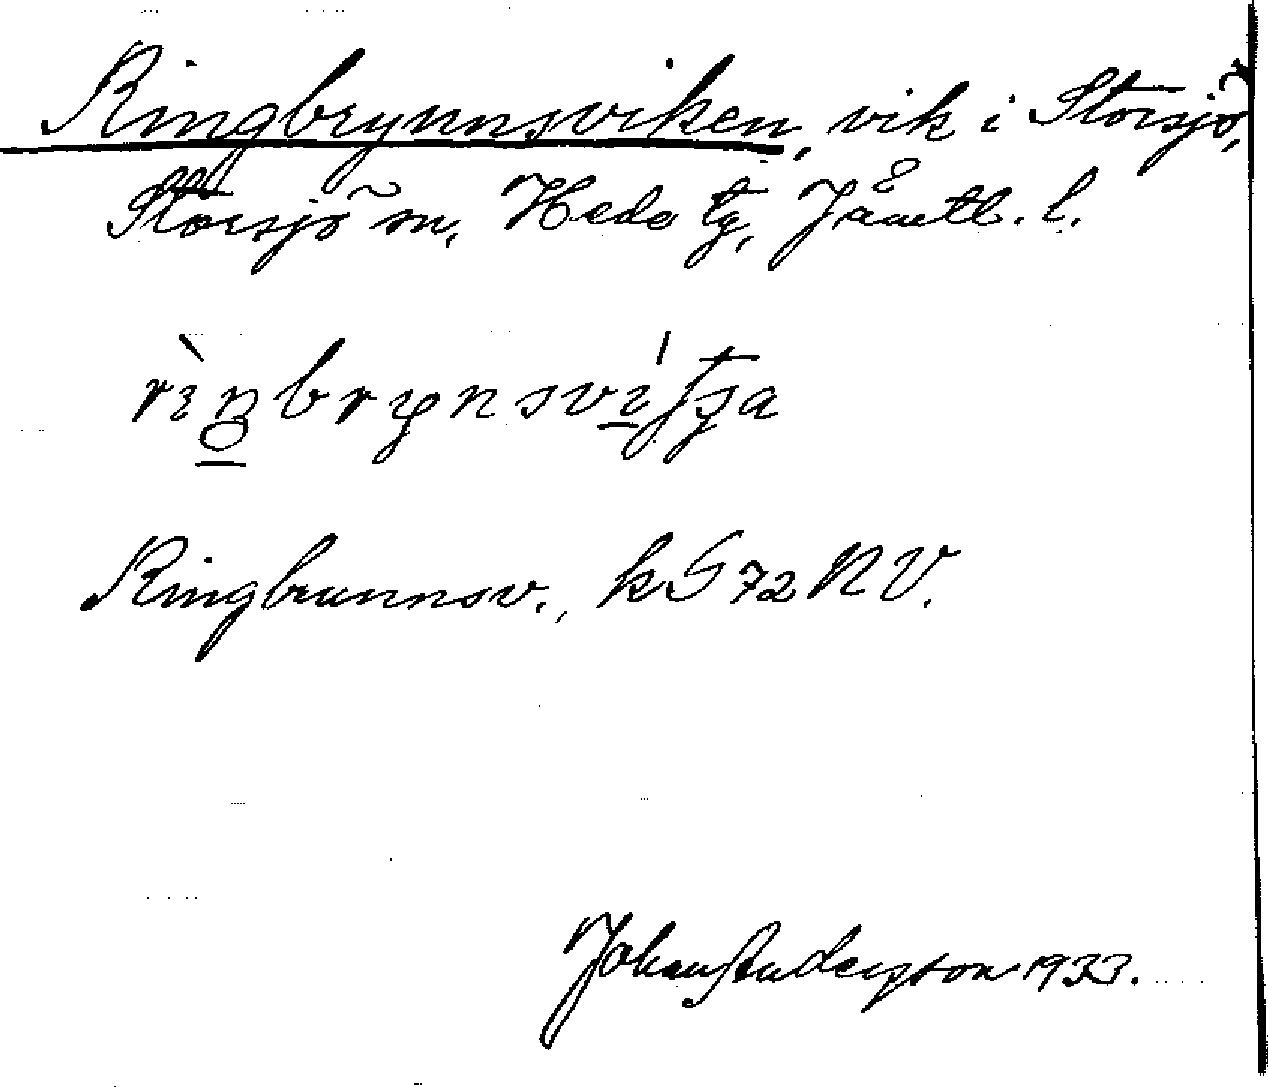 Ringbrynnsviken, vik i Storsjö,
Storsjö sn, Hede tg, Jämtl. l.
Ringbrunnsv., kG 72 NV.
Johan Anderzson 1933.